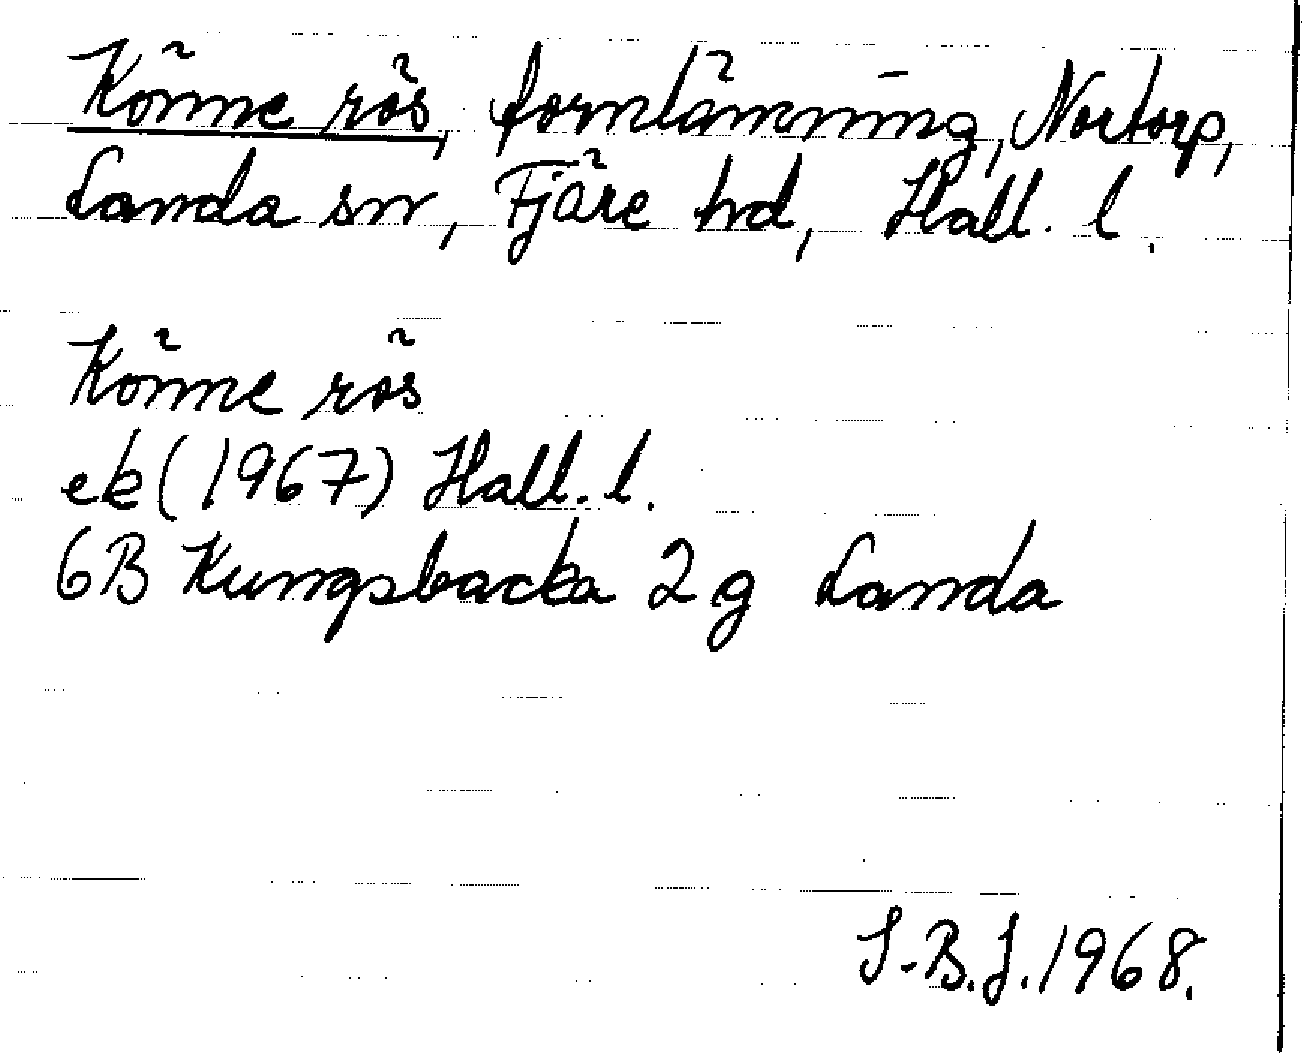 Könne rös, fornlämning, Nortorp,
Landa sn, Fjäre hd, Hall. l.
Könne rös
ek (1967) Hall. l.
6B Kungsbacka 2g Landa
S-B.J. 1968.